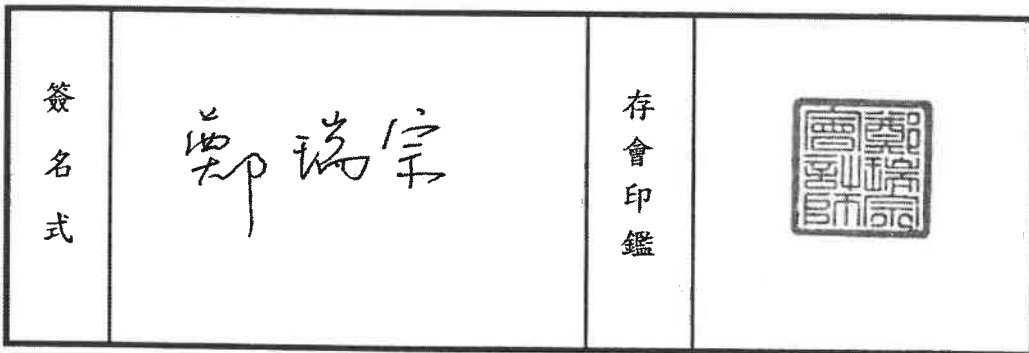 簽名式
鄭瑞宗
存會印鑑
鄭瑞宗
會計師